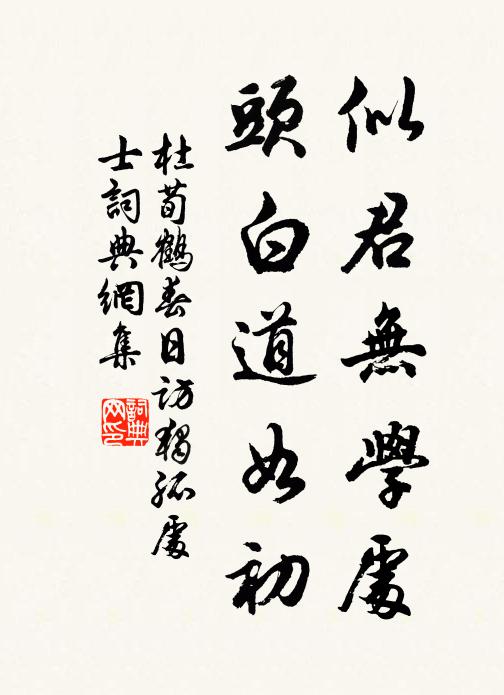 似君無學處
頭白道如初
杜荀鶴春日訪獨孤處
士詞典網集
詞典
網印